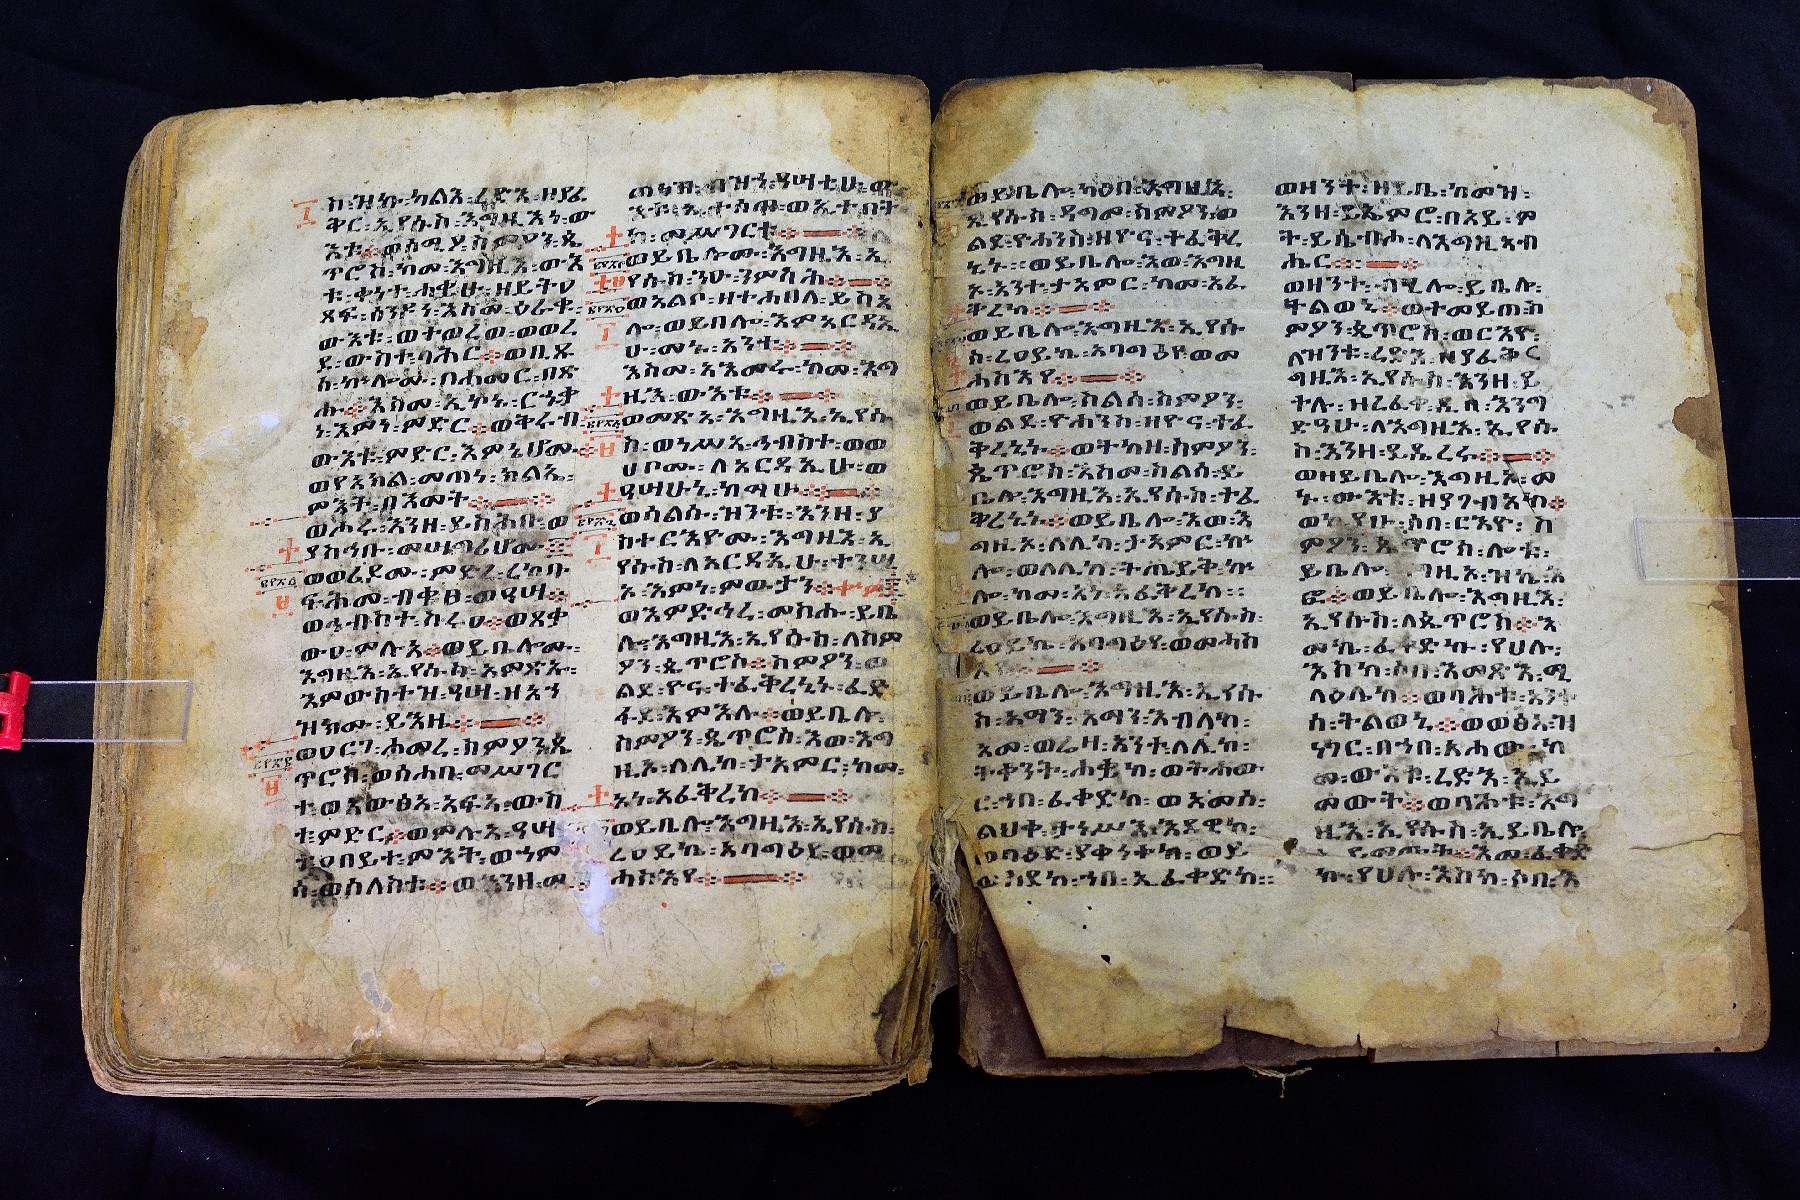 ኩ፡ ዝኩ፡ ካልእ፡ ረድእ፡ ዘያፈ
ቅር፡ ኢየሱስ፡ እግዚእነ፡ ው
እቱ፨ ወሰሚዖ፡ ስምዖን፡ ጴ
ጥሮስ፡ ከመ፡ እግዚእ፡ ውእ
ቱ፡ ቀነተ፡ ሐቌሁ፡ ዘይትዐ
ጸፍ፡ ሰንዶን፡ እስመ፡ ዕራቁ፡
ውእቱ፡ ወተወረወ፡ ወወረ
ደ፡ ውስተ፡ ባሕር፨ ወቢጹ
ሰ፡ ኵሎሙ፡ በሐመር፡ በጽ
ሑ፨ እስመ፡ ኢኮኑ፡ ርኁቃ
ነ፡ እምነ፡ ምድር፨ ወቅሩብ
ውእቱ፡ ምድር፡ እምኔሆሙ፡
ወየአክል፡ መጠነ፡ ክልኤ፡
ምእት፡ በእመት፨
ወሖሩ፡ እንዘ፡ ይስሕቡ፡ ወ
ያስኀቡ፡ መሣግሪሆሙ፡
ወወሪዶሙ፡ ምድረ፡ ረከቡ፡
ፍሕመ፡ ብቁፀ፡ ወዓሣ፨
ወኅብስተ፡ ስሩዐ፨ ወጸቀ
ውዐ፡ ምሉአ፨ ወይቤሎሙ፡
እግዚእ፡ ኢየሱስ፡ አምጽኡ፡
እምውስተ፡ ዝ፡ ዓሣ፡ ዘአን
ዝክሙ፡ ይእዜ፨
ወዐርገ፡ ሐመረ፡ ስምዖን፡ ጴ
ጥሮስ፡ ወሰሐበ፡ መሥገር
ተ፡ ወአውፅአ፡ አፍአ፡ ውስ
ተ፡ ምድር፨ ወምሉእ፡ ዓሣ
ተ፡ ዐበይተ፡ ምእት፡ ወኀም
ሳ፡ ወሰለስቱ፨ ወእንዘ፡ መ
ወኢተሰጠ፡ ወኢተበት
ከ፡ መሥገርቱ፨
ወይቤሎሙ፡ እግዚእ፡ ኢ
የሱስ፡ ንዑ፡ ንምሳሕ፨
ወአልቦ፡ ዘተሐበለ፡ ይስአ
ሎ፡ ወይበሎ፡ እምአርዳኢ
ሁ፡ መኑ፡ አንተ፨
እስመ፡ አእመሩ፡ ከመ፡ እግ
ዚእ፡ ውእቱ፨
ወመጽአ፡ እግዚእ፡ ኢየሱ
ስ፡ ወነሥአ፡ ኅብስተ፡ ወወ
ሀቦሙ፡ ለአርዳኢሁ፡ ወ
ዓሣሁኒ፡ ከማሁ፨
ወሳልሱ፡ ዝንቱ፡ እንዘ፡ ያ
ስተርእዮሙ፡ እግዚእ፡ ኢ
የሱስ፡ ለአርዳኢሁ፡ ተንሢ
ኦ፡ እምነ፡ ምውታን፨
ወእምድኅረ፡ መስሑ፡ ይቤ
ሎ፡ እግዚእ፡ ኢየሱስ፡ ለስም
ዖን፡ ጴጥሮስ፨ ስምዖን፡ ወ
ልደ፡ ዮና፡ ተፈቅረኒኑ፡ ፈድ
ፋደ፡ እምእሉ፨ ወይቤሎ፡
ስምዖን፡ ጴጥሮስ፡ እወ፡ እግ
ዚኦ፡ ለሊከ፡ ታአምር፡ ከመ፡
አነ፡ አፈቅረከ፨
ወይቤሎ፡ እግዚእ፡ ኢየሱስ፡
ረዐይኬ፡ አባግዕየ፡ ወመ
ሐስእየ፨
ወይቤሎ፡ ካዕበ፡ እግዚእ፡
ኢየሱስ፡ ዳግመ፡ ስምዖን፡ ወ
ልደ፡ ዮሐንስ፡ ዘዮና፡ ተፈቅረ
ኒኑ፡፡ ወይቤሎ፡ እወ፡ እግዚ
ኦ፡ አንተ፡ ታአምር፡ ከመ፡ አፈ
ቅረከ፨
ወይቤሎ፡ እግዚእ፡ ኢየሱ
ስ፡ ረዐይኬ፡ አባግዕየ፡ ወመ
ሐስእየ፨
ወይቤሎ፡ ስልሰ፡ ስምዖን፡
ወልደ፡ ዮሐንስ፡ ዘዮና፡ ተፈ
ቅረኒኑ፨ ወተከዘ፡ ስምዖን፡
ጴጥሮስ፡ እስመ፡ ስልሰ፡ ይ
ቤሎ፡ እግዚእ፡ ኢየሱስ፡ ተፈ
ቅረኒኑ፨ ወይቤሎ፡ እወ፡ እ
ግዚኦ፡ ለሊከ፡ ታአምር፡ ኵ
ሎ፡ ወለሊከ፡ ትጤይቅ፡ ኵ
ሎ፡ ከመ፡ አነ፡ አፈቅረከ፡፡
ወይቤሎ፡ እግዚእ፡ ኢየሱስ፡
ረዐይኬ፡ አባግዕየ፡ ወመሐስ
እየ፨
ወይቤሎ፡ እግዚእ፡ ኢየሱ
ስ፡ አማን፡ አማን፡ እብለከ፡
አመ፡ ወሬዛ፡ አንተ፡ ለሊከ፡
ትቀንት፡ ሐቌከ፡ ወትሐው
ር፡ ኀበ፡ ፈቀድከ፡ ወአመሰ፡
ልህቀ፡ ታነሥእ፡ እደዊከ፡
ወባዕድ፡ ያቀንተከ፡ ወይ
ወስደከ፡ ኀበ፡ ኢፈቀድከ፡፡
ወዘንተ፡ ዘይቤ፡ ከመዝ፡
እንዘ፡ ይኤምሮ፡ በአይ፡ ሞ
ት፡ ይሴብሖ፡ ለእግዚአብ
ሔር፨
ወዘንተ፡ ብሂሎ፡ ይቤሎ፡
ትልወኒ፨ ወተመይጠ፡ ስ
ምዖን፡ ጴጥሮስ፡ ወርእዮ፡
ለዝንቱ፡ ረድእ፡ ዘያፈቅር
እግዚእ፡ ኢየሱስ፡ እንዘ፡ ይ
ተሉ፡ ዝረፈቀ፡ ዲበ፡ እንግ
ድዓሁ፡ ለእግዚእ፡ ኢየሱ
ስ፡ እንዘ፡ ይዴረር፨
ወዘይቤሎ፡ እግዚእ፡ መ
ኑ፡ ውእቱ፡ ዘያገብአከ፨
ወኪያሁ፡ ሶበ፡ ርእዮ፡ ስ
ምዖን፡ ጴጥሮስ፡ ሎቱ፡
ይቤሎ፡ እግዚኦ፡ ዝኬ፡ እ
ፎ፨ ወይቤሎ፡ እግዚእ፡
ኢየሱስ፡ ለጴጥሮስ፨ እ
መኬ፡ ፈቀድኩ፡ የሀሉ፡
እስከ፡ ሶበ፡ እመጽእ፡ ሚ
ላዕሌከ፨ ወባሕቱ፡ አንተ
ሰ፡ ትልወኒ፨ ወወፅአ፡ ዝ
ነገር፡ በኀበ፡ አሐው፡ ከ
መ፡ ውእቱ፡ ረድእ፡ ኢይ
መውት፨ ወባሕቱ፡ እግ
ዚእ፡ ኢየሱስ፡ ኢይቤሎ፡
ኢይመውት፨ እመ፡ ፈቀድ
ኩ፡ የሀሉ፡ እስከ፡ ሶበ፡ እ